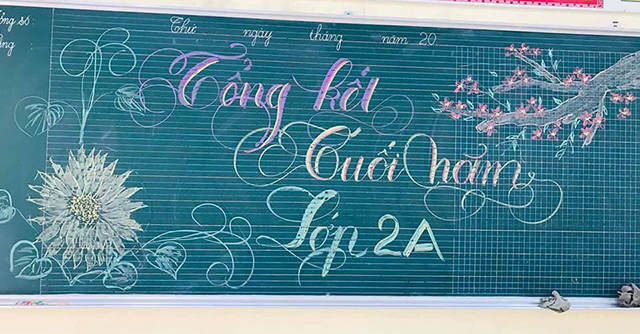 Thứ ngày tháng năm 20
Tổng kết
Cuối năm
Lớp 2A